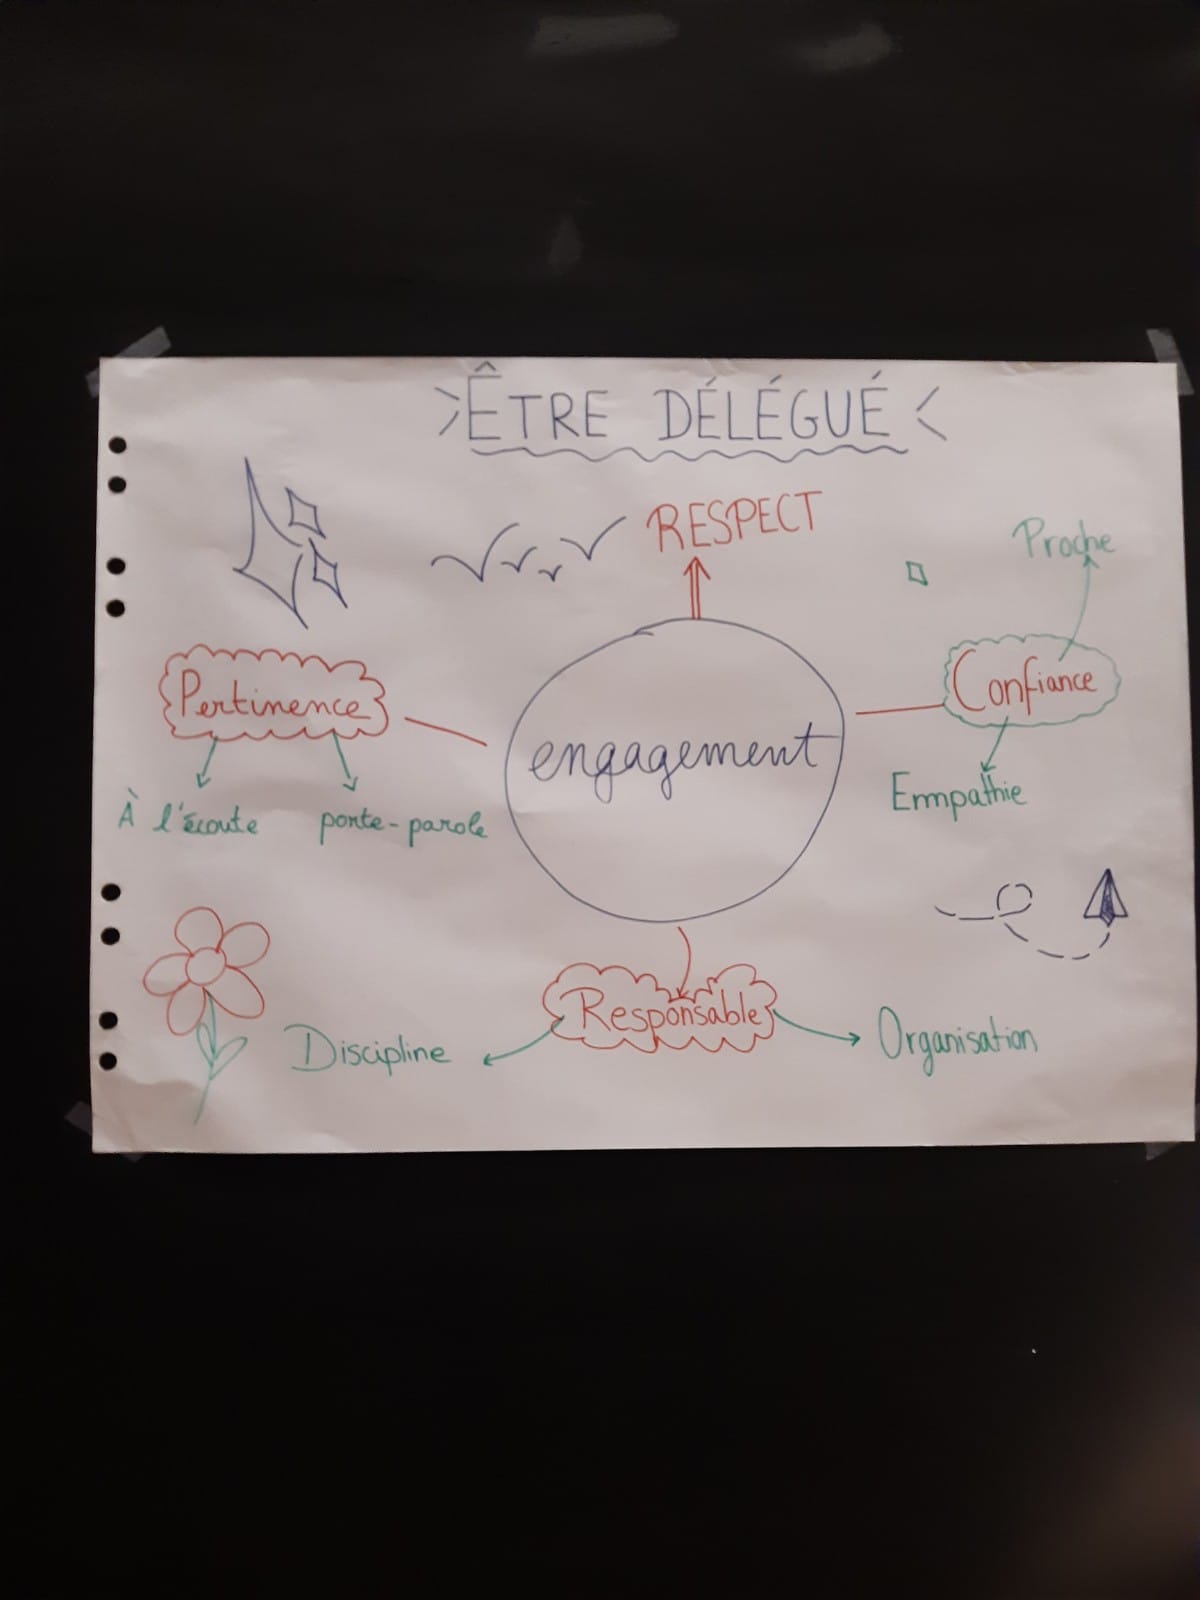 ÊTRE DÉLÉGUÉ
RESPECT
Proche
Pertinence
Confiance
engagement
Empathie
À l'écoute
porte-parole
Responsable
Discipline
Organisation